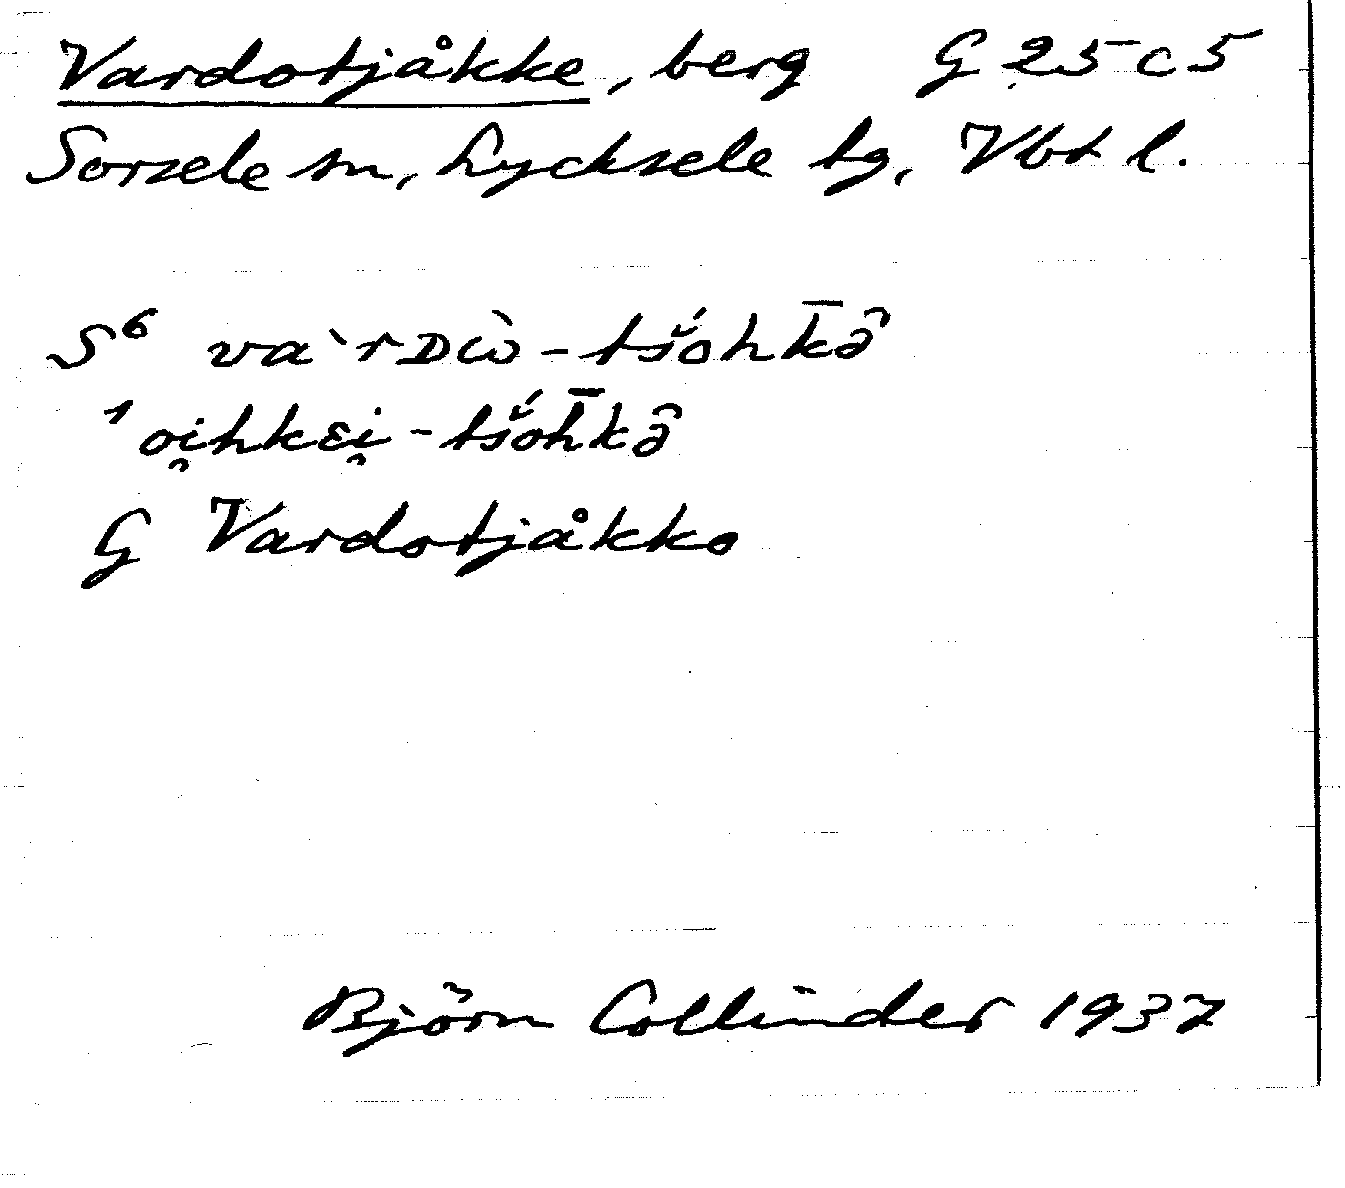 Vardotjåkke, berg G 25 c 5
Sorsele sn, Lycksele tg, Vbt l.
S⁶ va`rᴅὼ-tš́ohk̄ə̂
¹ oi̯hkɛi̯-tš́oh̄kə̂
G Vardotjåkko
Björn Collinder 1937